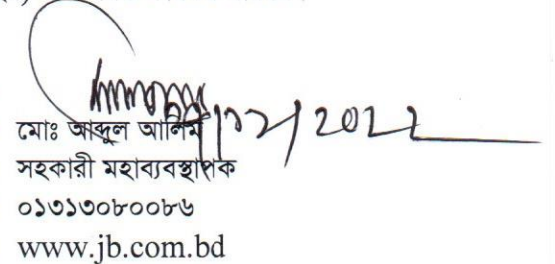 মোঃ আব্দুল আলিম
সহকারী মহাব্যবস্থাপক
০১৩১৩০৮০০৮৬
www.jb.com.bd